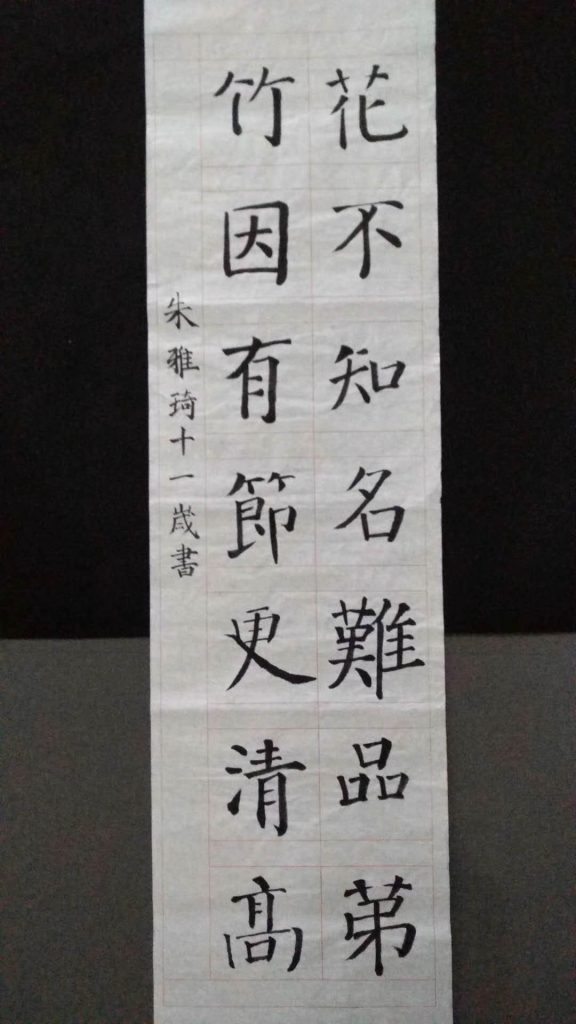 花不知名難品苐
竹因有節更清髙
朱雅琦十一歲書